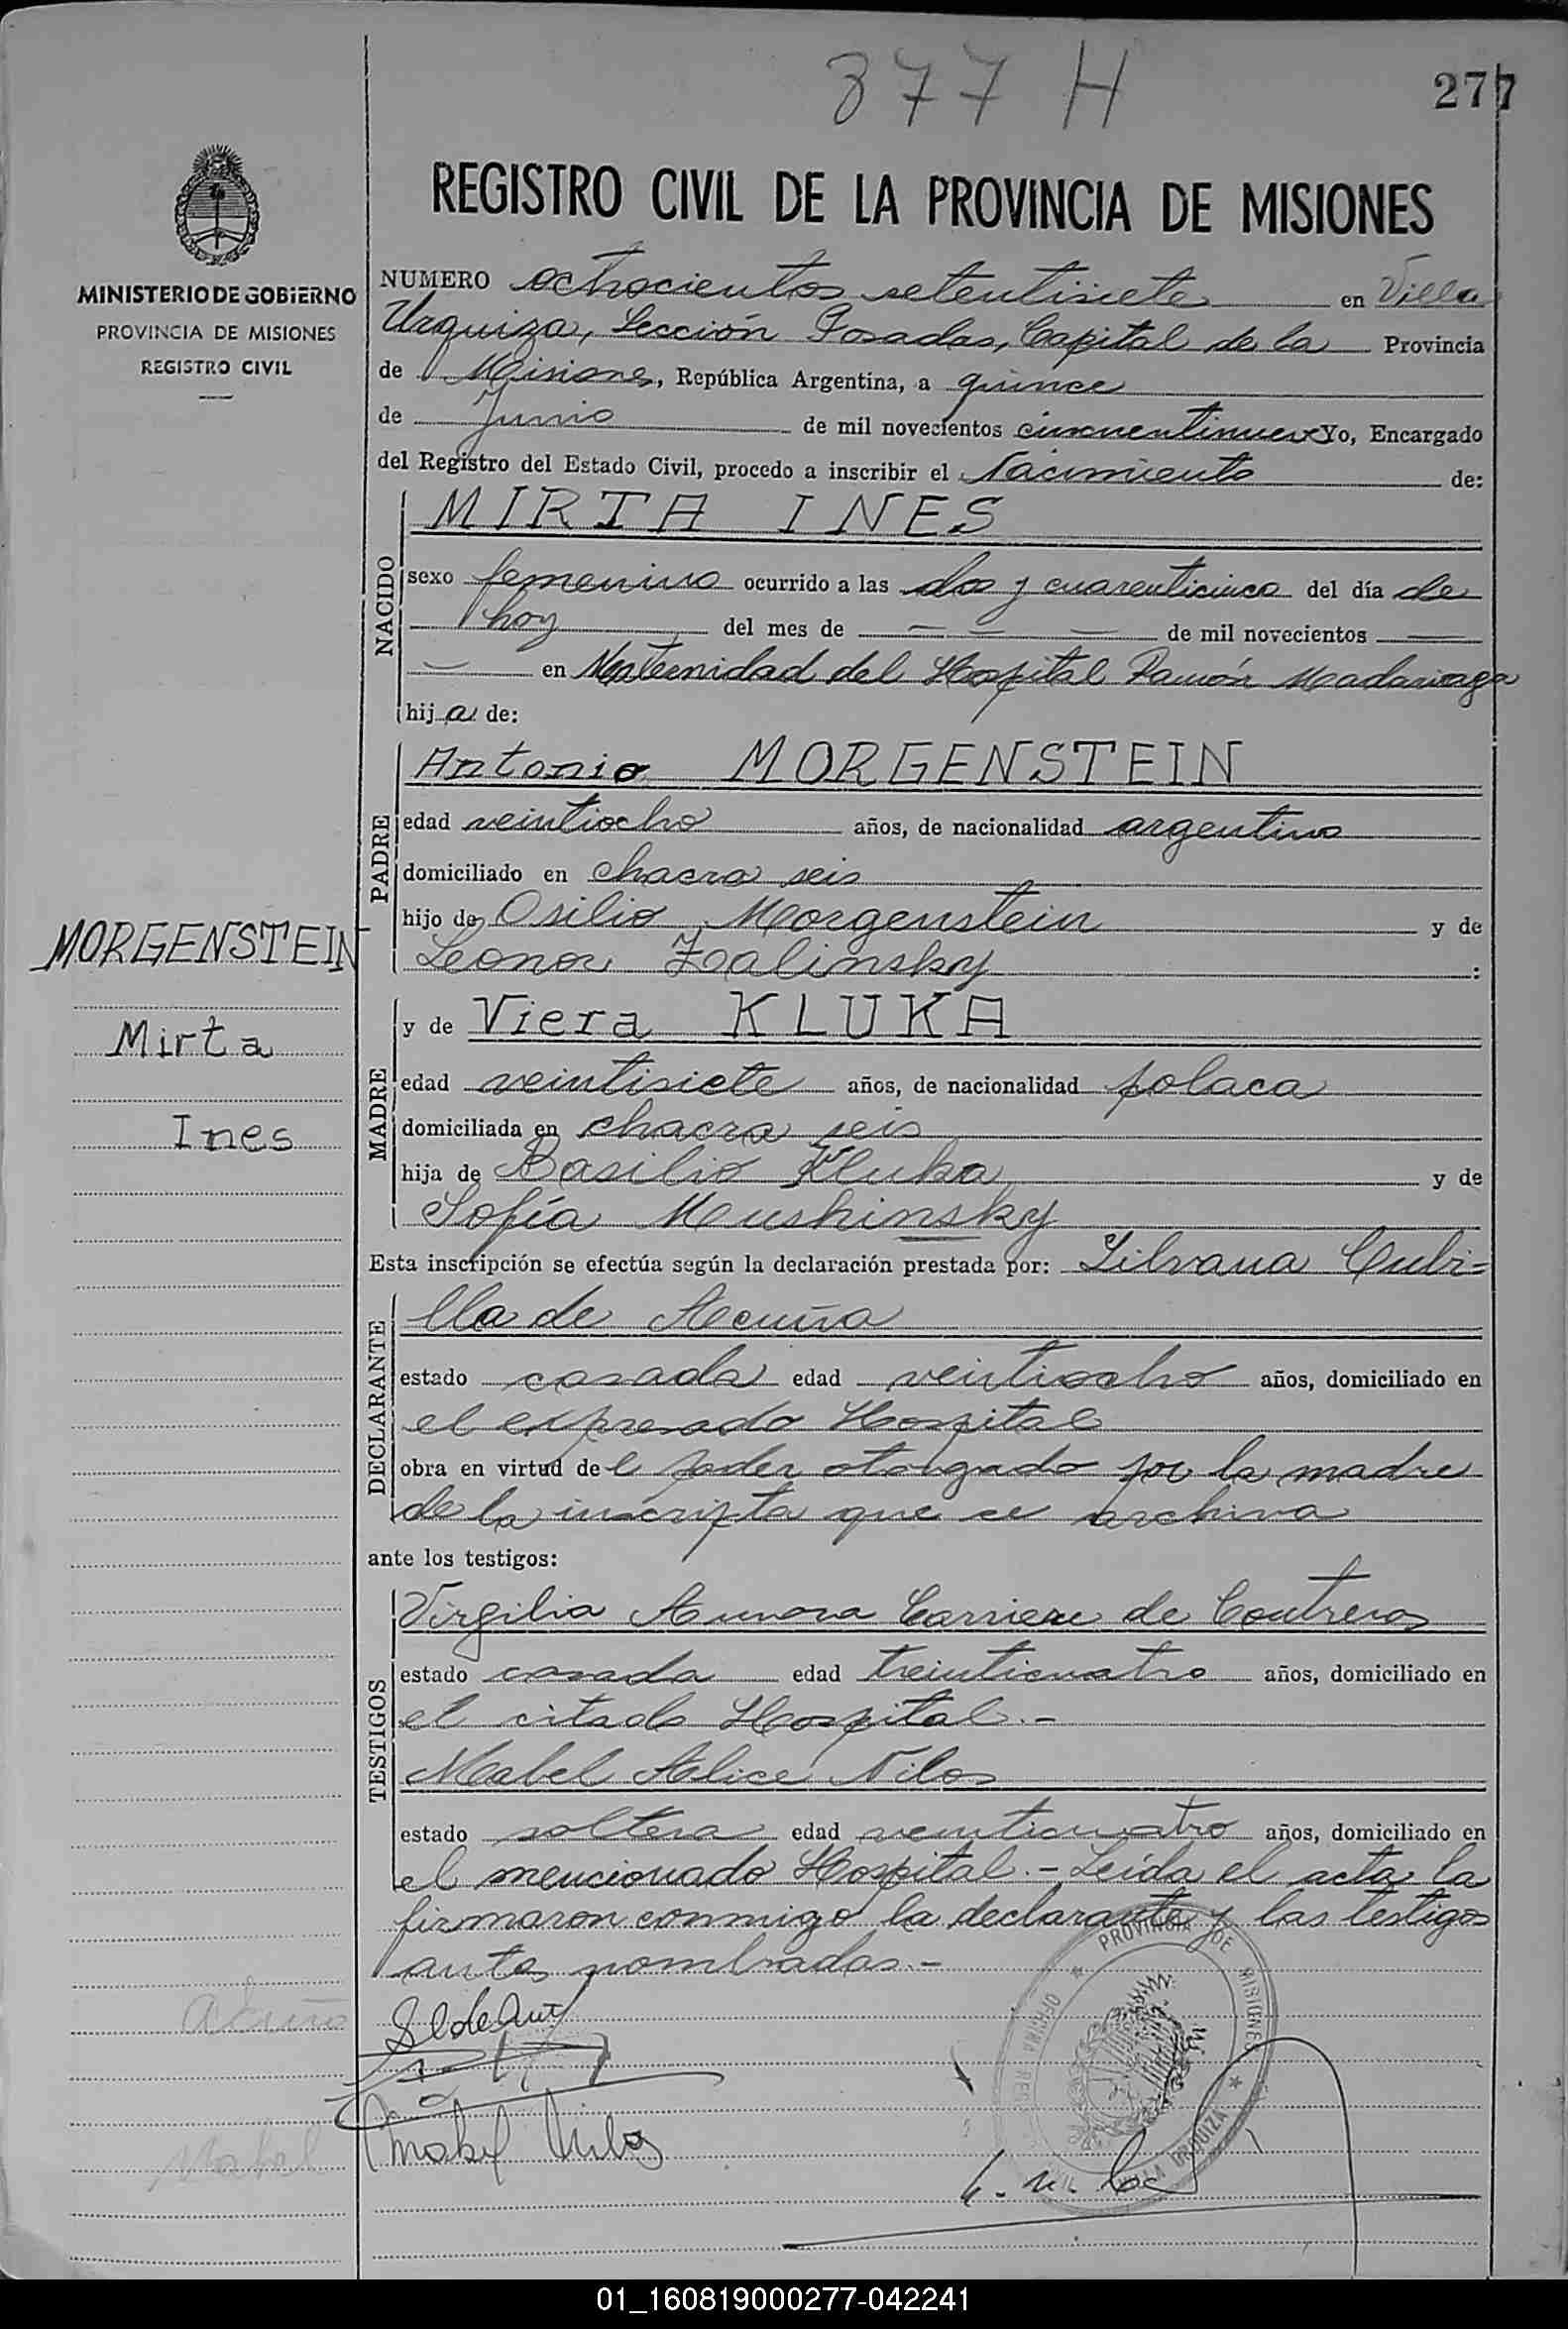 877 H
277
REGISTRO CIVIL DE LA PROVINCIA DE MISIONES
MINISTERIO DE GOBIERNO
PROVINCIA DE MISIONES
REGISTRO CIVIL
NUMERO ochocientos setentisiete en Villa
Urquiza, Sección Posadas, Capital de la Provincia
de Misiones, República Argentina, a quince
de Junio de mil novecientos cincuentinueve Yo, Encargado
del Registro del Estado Civil, procedo a inscribir el Nacimiento de:
NACIDO
MIRTA INES
sexo femenino ocurrido a las dos y cuarenticinco del día de
hoy del mes de — — — de mil novecientos —
— en Maternidad del Hospital Ramón Madariaga
hij a de:
PADRE
Antonio MORGENSTEIN
edad veintiocho años, de nacionalidad argentina
domiciliado en chacra seis
hijo de Osilio Morgenstein y de
Leonor Zalinsky :
MORGENSTEIN
Mirta
Ines
MADRE
y de Viera KLUKA
edad veintisiete años, de nacionalidad polaca
domiciliada en chacra seis
hija de Basilio Kluka y de
Sofía Mushinsky
Esta inscripción se efectúa según la declaración prestada por: Silvana Cubi=
DECLARANTE
lla de Acuña
estado casada edad veintiocho años, domiciliado en
el expresado Hospital
obra en virtud de l poder otorgado por la madre
de la inscripta que se archiva
ante los testigos:
TESTIGOS
Virgilia Aurora Carriere de Contreras
estado casada edad treinticuatro años, domiciliado en
el citado Hospital.-
Mabel Alice Nilos
estado soltera edad veinticuatro años, domiciliado en
el mencionado Hospital.- Leída el acta la
firmaron conmigo la declarante y las testigos
antes nombradas.-
PROVINCIA DE MISIONES
OFICINA REG CIVIL VILLA URQUIZA
Acuña
Mabel
Mabel Nilos
01_160819000277-042241